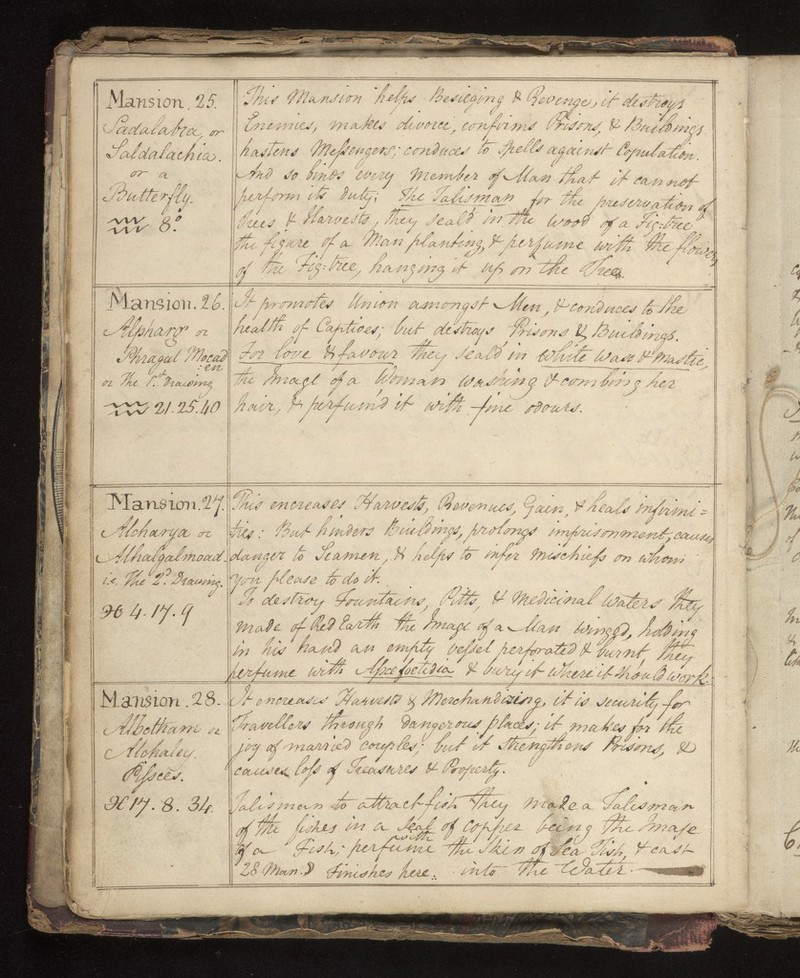 Mansion. 25.
Sadalabra, or
Saldalachia.
or a
Butterfly.
♒ 8.°
This Mansion helps Besieging & Revenge, it destroys
Enemies, makes divorce, confirms Prisons, & Buildings
hastens Messengers; conduces to Spells against Copulation.
And so binds every Member of Man that it cannot
perform its duty; The Talisman for the preservation of
Trees & Harvests, they seal'd in the wood of a Fig-tree
the figure of a Man planting, & perfume with the flowers
of the Fig-tree, hanging it up on the Tree.
Mansion. 26.
Alpharg or
Phragal Mocad
:en
or The 1.st Drawing
♒ 21.25.40
It promotes Union amongst Men, & conduces to the
health of Captives; but destroys Prisons & Buildings.
For love & favour they seal'd in White Wax & Mastic,
the Image of a Woman washing & combing her
hair, & perfum'd it with fine odours.
Mansion. 27.
Alcharya or
Althalgalmoad.
i.e. The 2.d Drawing.
♓ 4.17.9
This encreases Harvests, Revenues, Gain, & heals infirmi=
ties: But hinders Buildings, prolongs imprisonment, causes
danger to Seamen, & helps to infer mischiefs on whom
you please to do it.
To destroy Fountains, Pitts, & Medicinal Waters they
made of Red Earth the Image of a Man winged, holding
in his hand an empty vessel perforated & burnt they
perfume with Assafoetidia & bury it where it should work.
Mansion. 28.
Albotham or
Alchaley.
Pisces.
♓ 17. 8. 34.
It encreases Harvests & Merchandizing, it is security for
Travellers through dangerous places; it makes for the
joy of married couples; but it strengthens Prisons, &
causes loss of Treasures & Property.
Talisman to attract fish they make a Talisman
of the fishes in a Seal of Copper being the Image
of a Fish; perfume with the Skin of Sea Fish, & cast
28 Man.s Finishes here. into the Water.